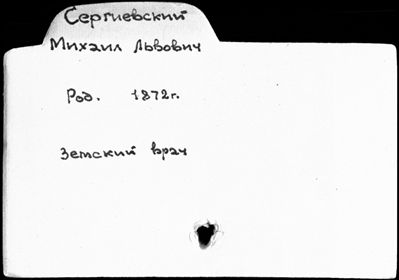 Сергиевский
Михаил Львович
Род. 1872г.
Земский врач